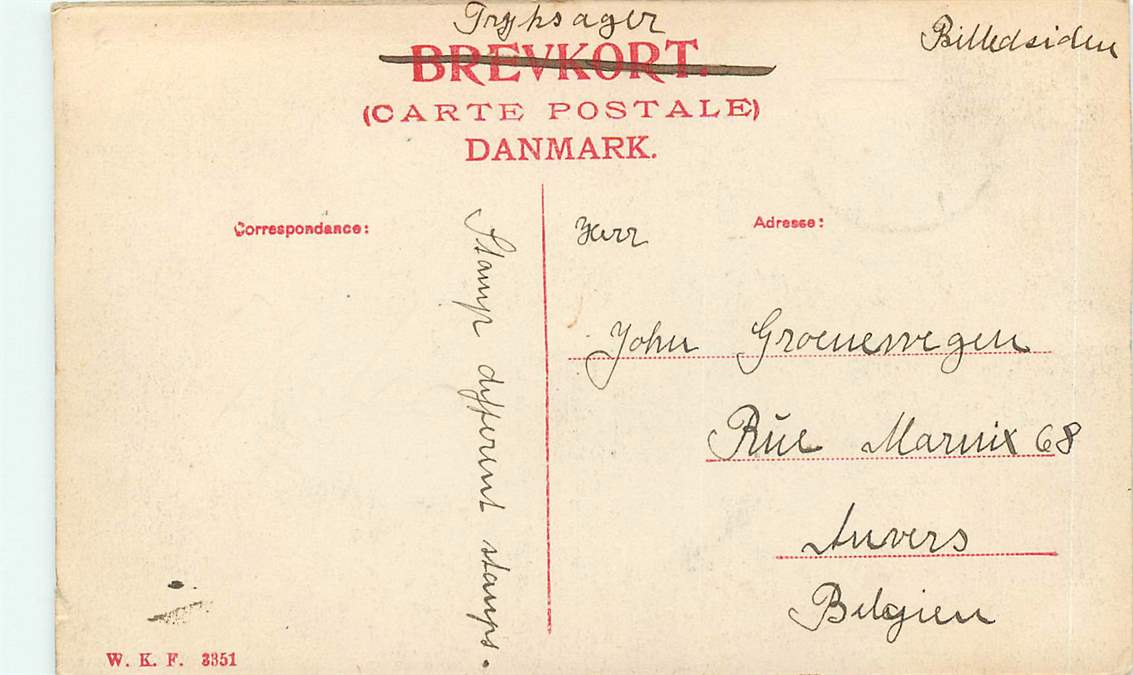 Tryksager
Billedsiden
BREVKORT.
(CARTE POSTALE)
DANMARK.
Correspondance:
Adresse:
Stamp different stamps.
Herr
John Groenewegen
Rue Marnix 68
Anvers
Belgien
W. K. F. 3351